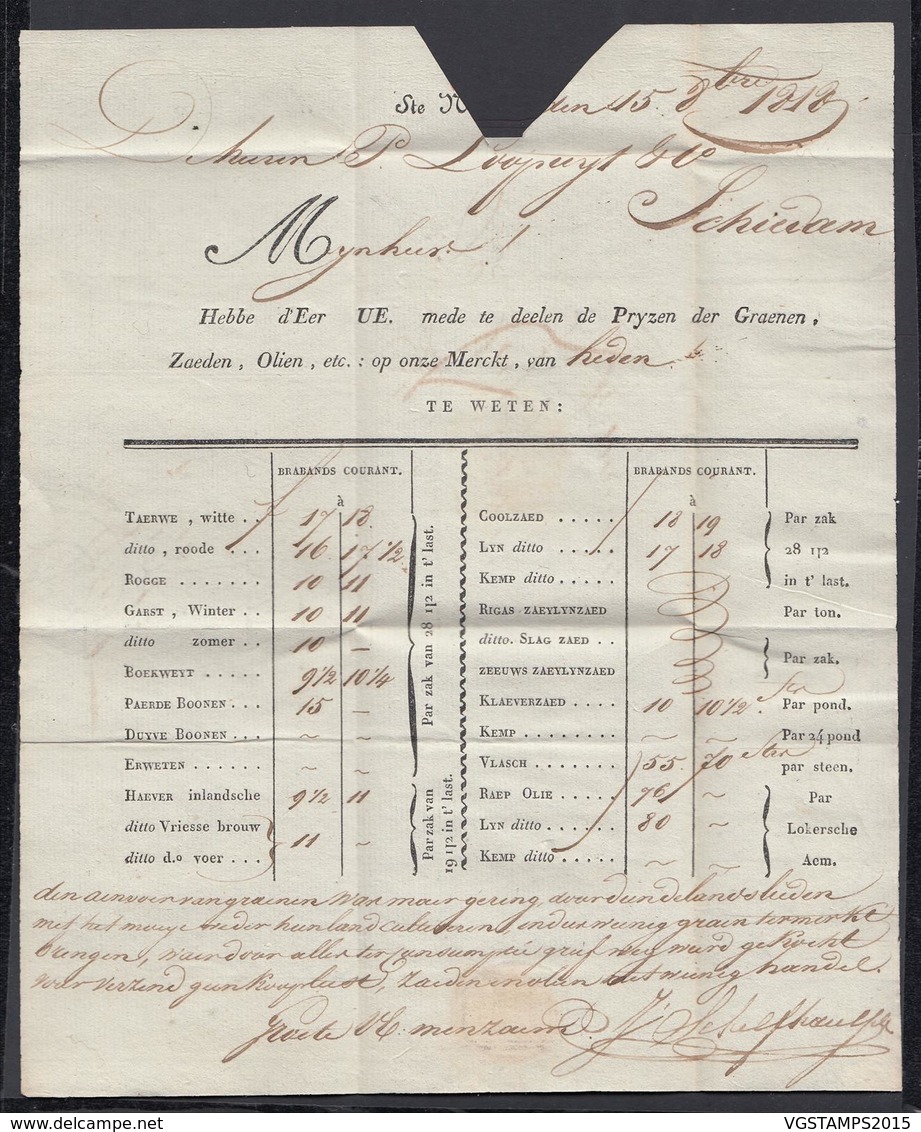 Ste N den 15 8bre 1818
De heeren P. Loopuyt & Co
Schiedam
Mynheer !
Hebbe d'Eer UE. mede te deelen de Pryzen der Graenen,
Zaeden, Olien, etc.: op onze Merckt, van heden
TE WETEN:
BRABANDS COURANT. BRABANDS COURANT.
à à
TAERWE, witte . . 17 18 COOLZAED . . . . . 18 19 Par zak
ditto, roode . . . 16 17 1/2 LYN ditto . . . . . . 17 18 28 1|2
ROGGE . . . . . . . 10 11 KEMP ditto . . . . . in t' last.
GARST, Winter . . 10 11 RIGAS ZAEYLYNZAED Par ton.
ditto zomer . . 10 – ditto. SLAG ZAED . .
BOEKWEYT . . . . . 9 1/2 10 1/4 ZEEUWS ZAEYLYNZAED Par zak.
PAERDE BOONEN . . . 15 – KLAEVERZAED . . . . 10 10 1/2 Par pond.
DUYVE BOONEN . . . ~ ~ KEMP . . . . . . . . ~ ~ Par 24 pond
ERWETEN . . . . . . ~ ~ VLASCH . . . . . . . 55 70 par steen.
Par zak van 28 1|2 in t' last.
HAEVER inlandsche 9 1/2 11 RAEP OLIE . . . . . 76 ~ Par
ditto Vriesse brouw LYN ditto . . . . . . 80 ~ Lokersche
ditto d.o voer . . . 11 – KEMP ditto . . . . . ~ ~ Aem.
Par zak van
19 1|2 in t' last.
den aenvoer van graenen was maer gering, doordien de landslieden
met het moeye weder hun land cultiveren, en dus weinig graen ter merkt
brengen, waer door alles ter consumptie grif weg werd gekocht
voor verzend geen kooplust, zaeden en olien met weinig handel.
Groete UE. minzaem J. Schelfhault
VGSTAMPS2015